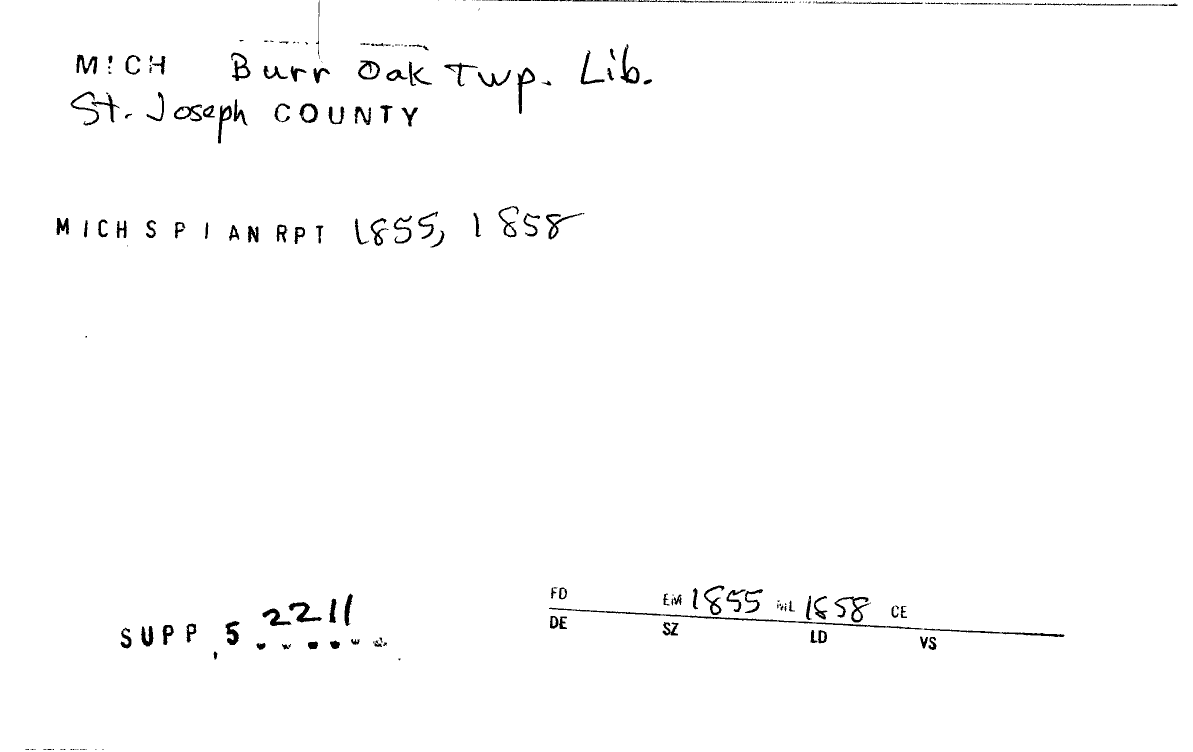 MICH Burr Oak Twp. Lib.
St. Joseph COUNTY
MICH S P I AN RPT 1855, 1858
2211
SUPP 5 . . . . . .
FD EM 1855 ML 1858 CE
DE SZ LD VS